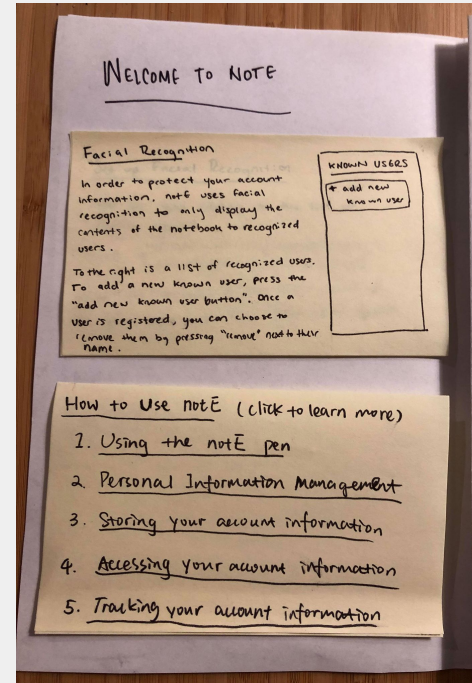 WELCOME TO NOTE
Facial Recognition
In order to protect your account
information, notE uses facial
recognition to only display the
contents of the notebook to recognized
users.
To the right is a list of recognized users.
To add a new known user, press the
"add new known user button". Once a
user is registered, you can choose to
remove them by pressing "remove" next to their
name.
KNOWN USERS
+ add new
known user
How to Use notE (click to learn more)
1. Using the notE pen
2. Personal Information Management
3. Storing your account information
4. Accessing your account information
5. Tracking your account information